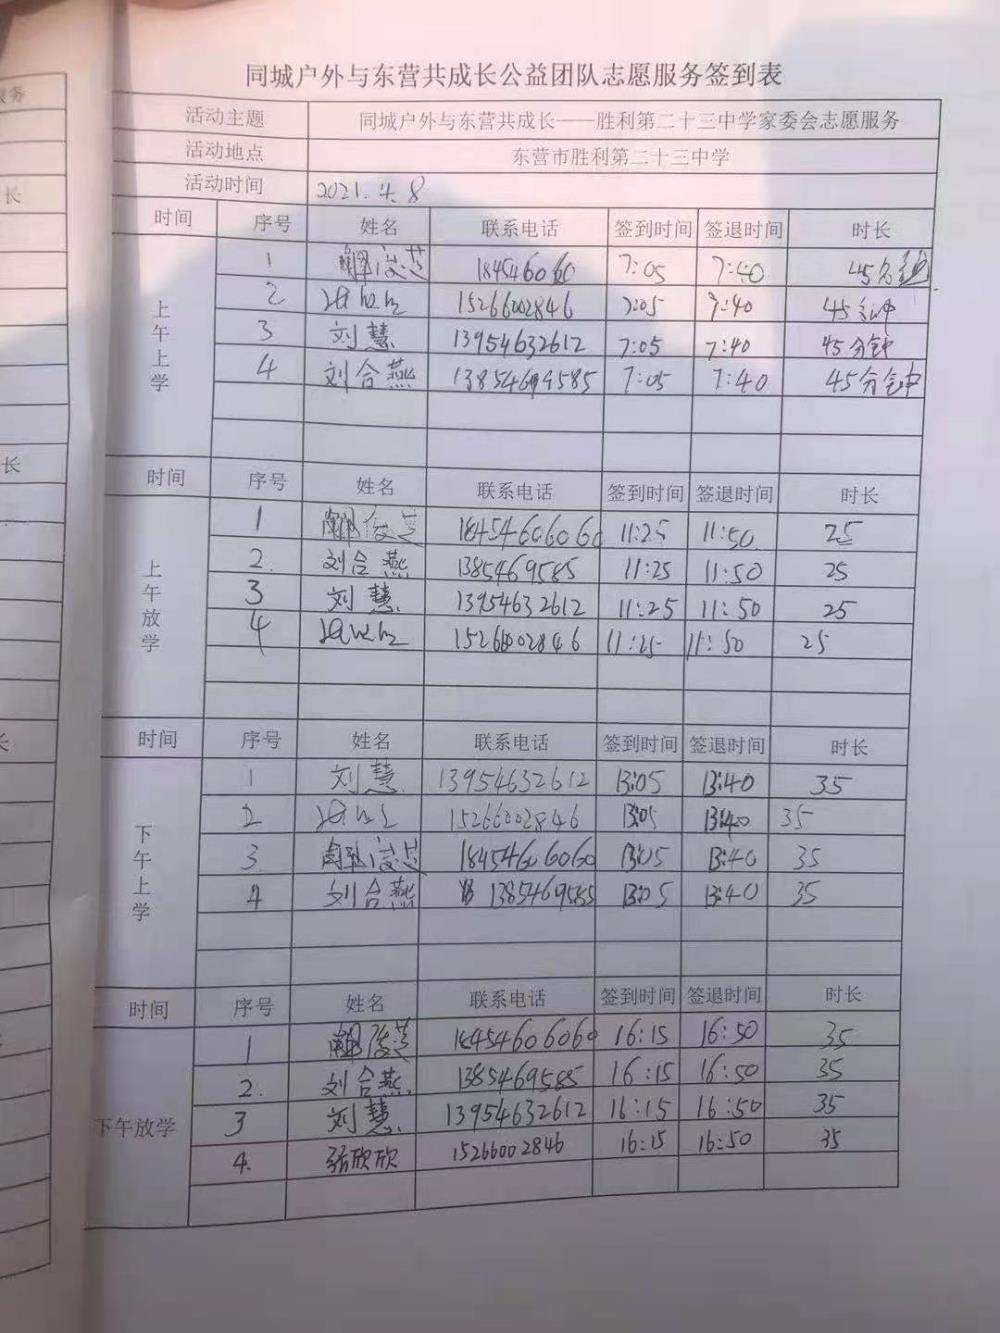 服务
长
长
长
同城户外与东营共成长公益团队志愿服务签到表
活动主题 同城户外与东营共成长——胜利第二十三中学家委会志愿服务
活动地点 东营市胜利第二十三中学
活动时间 2021.4.8
时间 序号 姓名 联系电话 签到时间 签退时间 时长
上午上学
1 184546060 7:05 7:40 45分钟
2 15266002846 7:05 7:40 45分钟
3 刘慧 13954632612 7:05 7:40 45分钟
4 刘合燕 7:05 7:40 45分钟
时间 序号 姓名 联系电话 签到时间 签退时间 时长
上午放学
1 18454606060 11:25 11:50 25
2. 刘合燕 1385469585 11:25 11:50 25
3 刘慧 13954632612 11:25 11:50 25
4 15266002846 11:25 11:50 25
时间 序号 姓名 联系电话 签到时间 签退时间 时长
下午上学
1 刘慧 13954632612 13:05 13:40 35
2 15266002846 13:05 13:40 35
3. 18454606060 13:05 13:40 35
4 刘合燕 1385469585 13:05 13:40 35
时间 序号 姓名 联系电话 签到时间 签退时间 时长
下午放学
1 18454606060 16:15 16:50 35
2. 刘合燕 1385469585 16:15 16:50 35
3 刘慧 13954632612 16:15 16:50 35
4. 张欣欣 15266002846 16:15 16:50 35